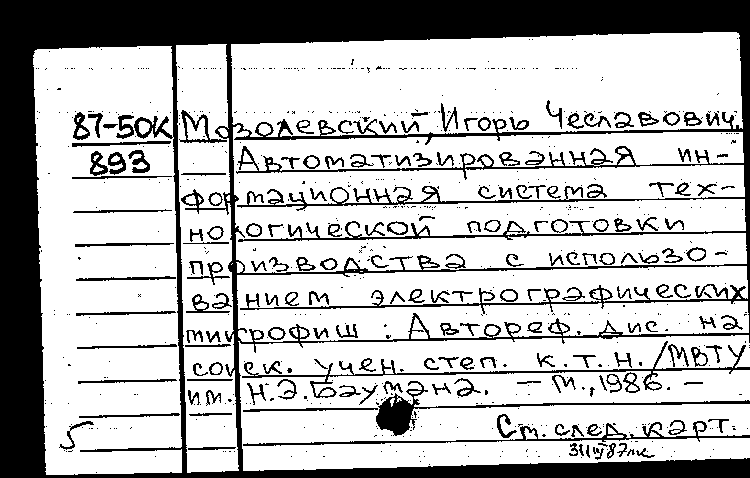 87-50К Мозолевский, Игорь Чеславович.
893 Автоматизированная ин-
формационная система тех-
нологической подготовки
производства с использо-
ванием электрографических
микрофиш : Автореф. дис. на
соиск. учен. степ. к.т.н. /МВТУ
им. Н.Э.Баумана. – М., 1986. –
5
См. след. карт.